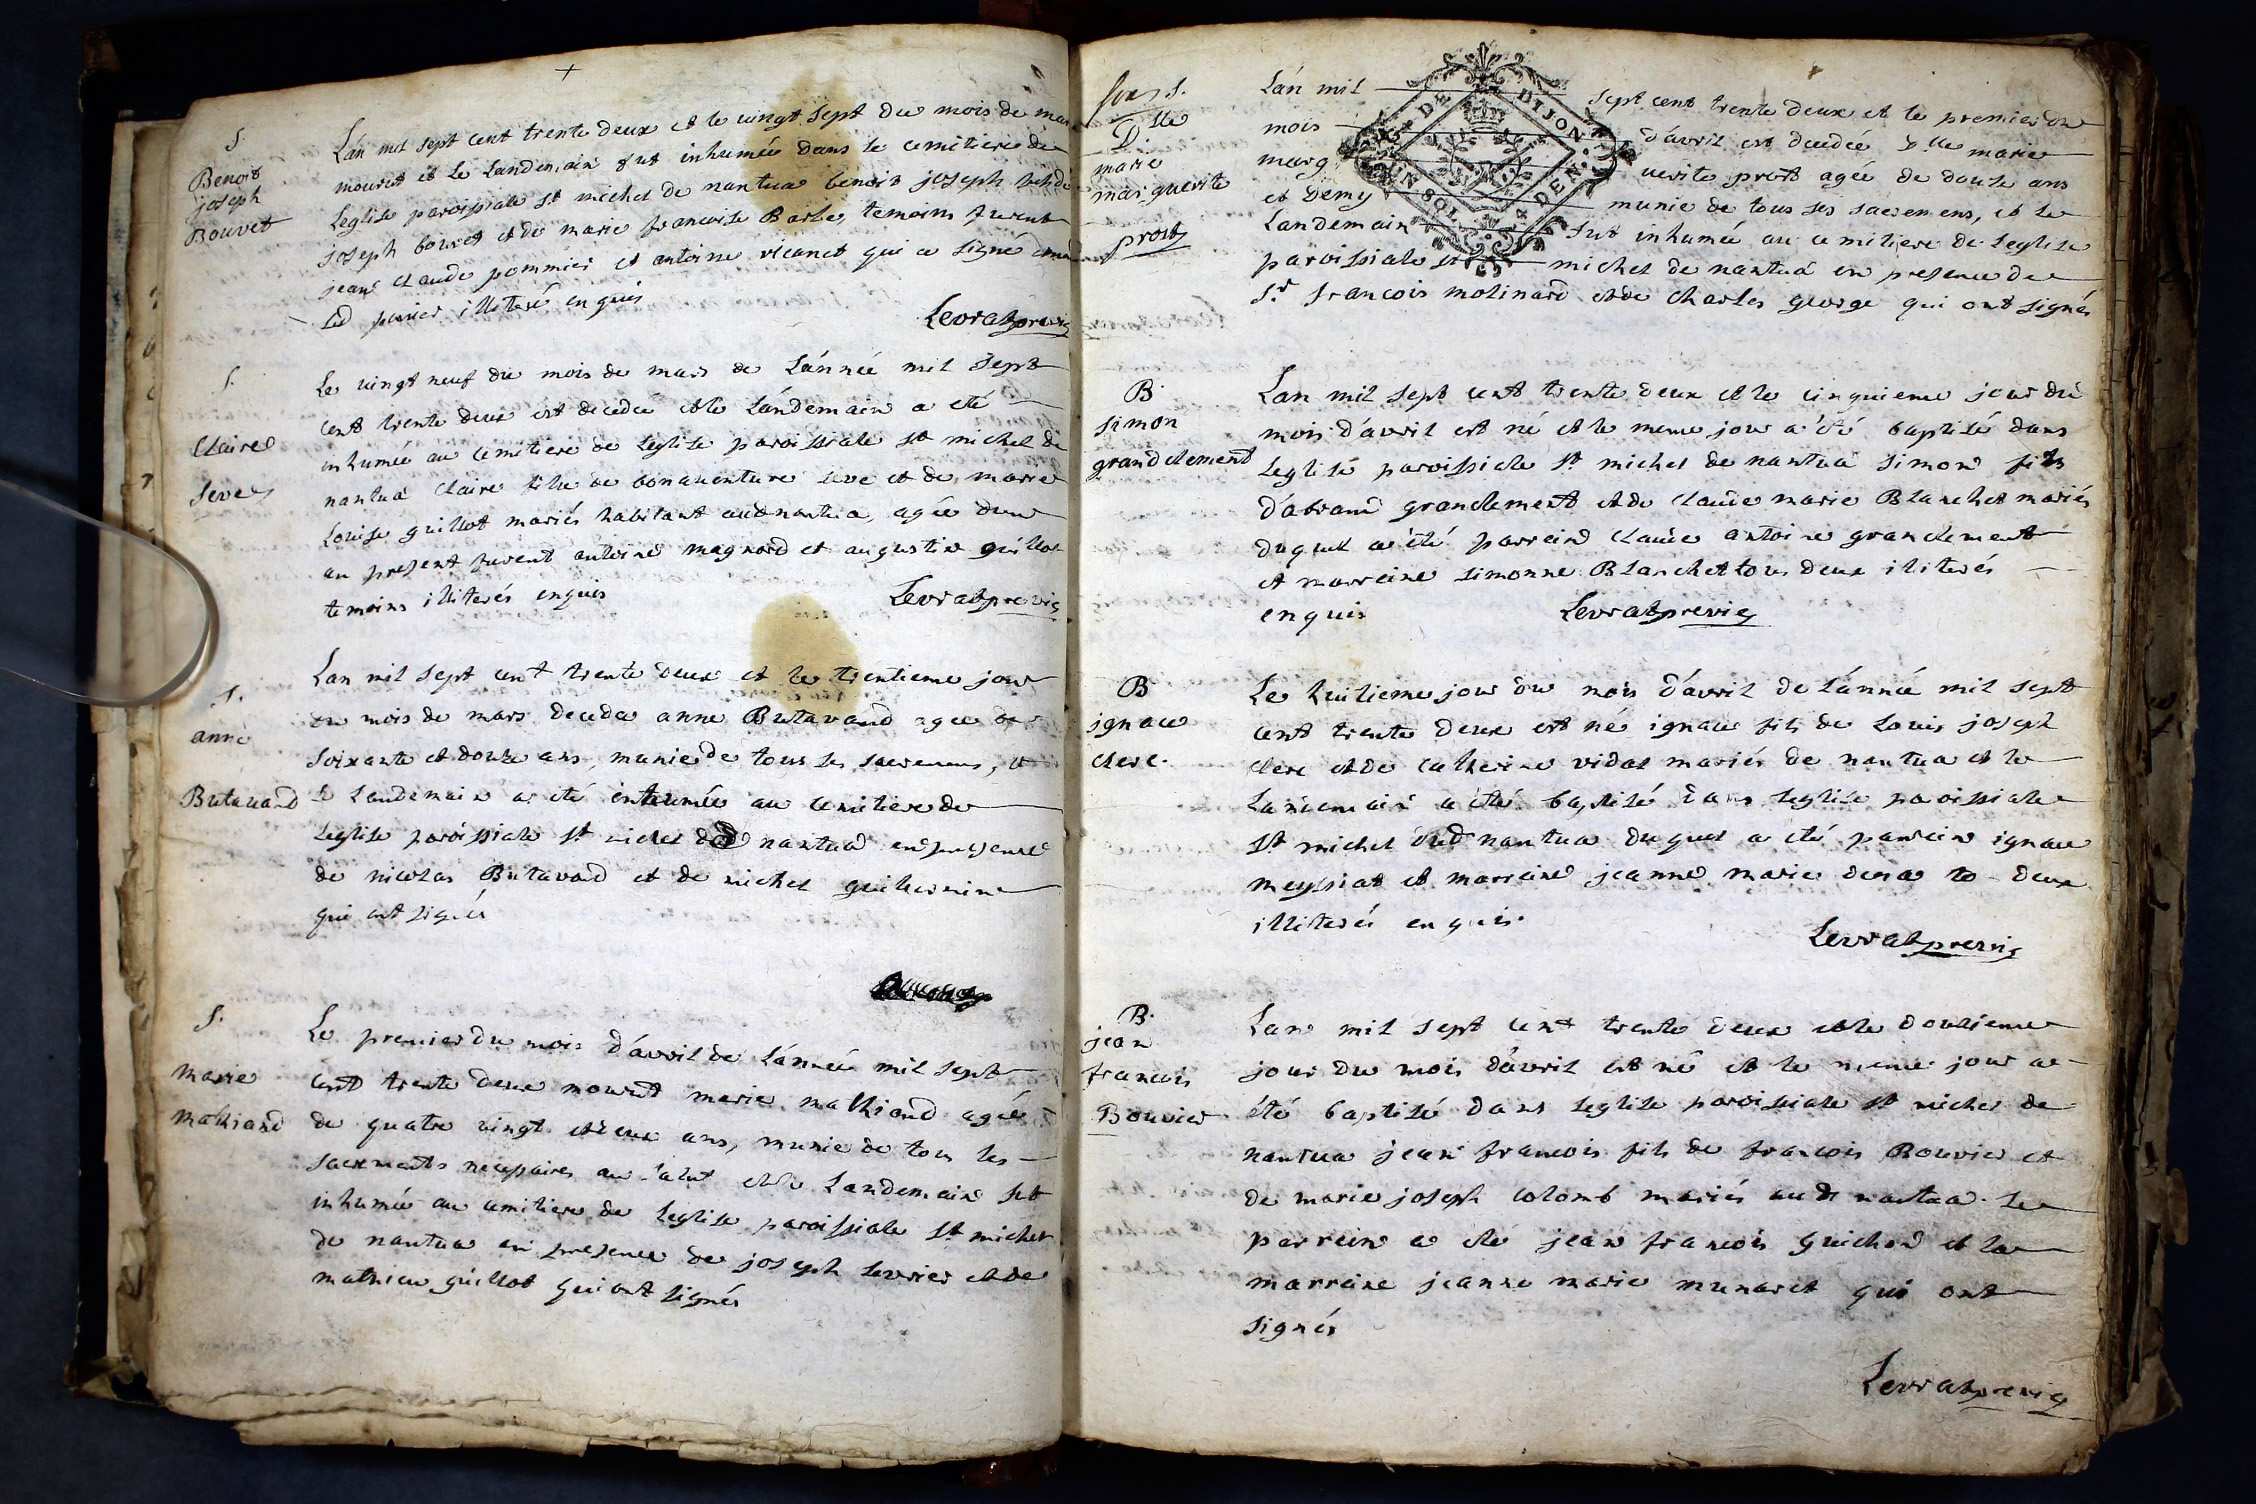 S
Benoit
joseph
Bouvet
Lan mil sept cent trente deux et le vingt sept du mois de
mourut et le Landemain fut inhumée dans le cemitiere de
Leglise paroissiale st michel de nantua benoit joseph
joseph bouvet et de marie francoise Barbe, temoins furent
jean claude pommier et antoine vicanet qui a signé
Led illiteré enquis
Levrat
S.
Claire
Seve
Le vingt neuf du mois de mars de Lánnée mil sept
cent trente deux est decedée et le Lándemain a eté
inhumée au cemitiere de Leglise paroissiale st michel de
nantua Claire fille de bonaventure seve et de marie
Louise guillot mariés habitant aud nantua, agée dun
an present furent antoine magnard et augustin guillot
temoins illiterés enquis
Levrat
S.
anne
Butavand
Lan mil sept cent trente deux et le trentieme jour
du mois de mars deceda anne Butavand agee de
soixante et douze ans, munie de tous les sacremens, et
Le Landemain a eté enterrée au cemitiere de
Leglise paroissiale st michel de nantua en presence
de nicolas Butavand et de michel guillermin
qui ont signés
S.
marie
mathiand
Le premier du mois dávril de Lánnée mil sept
cent trente deux mourut marie mathiand agée
de quatre vingt et deux ans, munie de tous les
sacrements necessaires au salut et le Landemain fut
inhumée au cemitiere de Leglise paroissiale st michel
de nantua en presence de joseph Levrier et de
mathieu guillot qui ont signés
S.
Dlle
marie
marguerite
prost
DE DIJON
UN SOL 4 DEN.
Lán mil sept cent trente deux et le premier du
mois dávril est decedée Dlle marie
marguerite prost agée de douze ans
et demy munie de tous ses sacremens, et le
Landemain fut inhumée au cemitiere de Leglise
paroissiale st michel de nantua en presence de
Sr francois molinard et de charles george qui ont signés
B.
simon
grandclement
Lan mil sept cent trente deux et le cinquieme jour du
mois dávril est né et le meme jour a été baptisé dans
Leglise paroissiale st michel de nantua simon fils
dábram granclement et de claude marie Blanchet mariés
duquel a été parrain claude antoine granclement
et marreine simonne Blanchet tous deux illiterés
enquis
Levrat
B
ignace
clerc.
Le huitieme jour du mois dávril de Lánnée mil sept
cent trente deux est né ignace fils de Louis joseph
clerc et de catherine vidal mariés de nantua et le
Landemain a été baptisé dans leglise paroissiale
st michel dud nantua duquel a été parrein ignace
meyssiat et marreine jeanne marie to deux
illiterés enquis.
Levrat
B.
jean
francois
Bouvier
Lan mil sept cent trente deux et le douzieme
jour du mois dávril est né et le meme jour a
été baptisé dans leglise paroissiale st michel de
nantua jean francois fils de francois Bouvier et
de marie joseph colomb mariés aud nantua Le
parrein a été jean francois guichon et la
marreine jeanne marie munaret qui ont
signés
Levrat